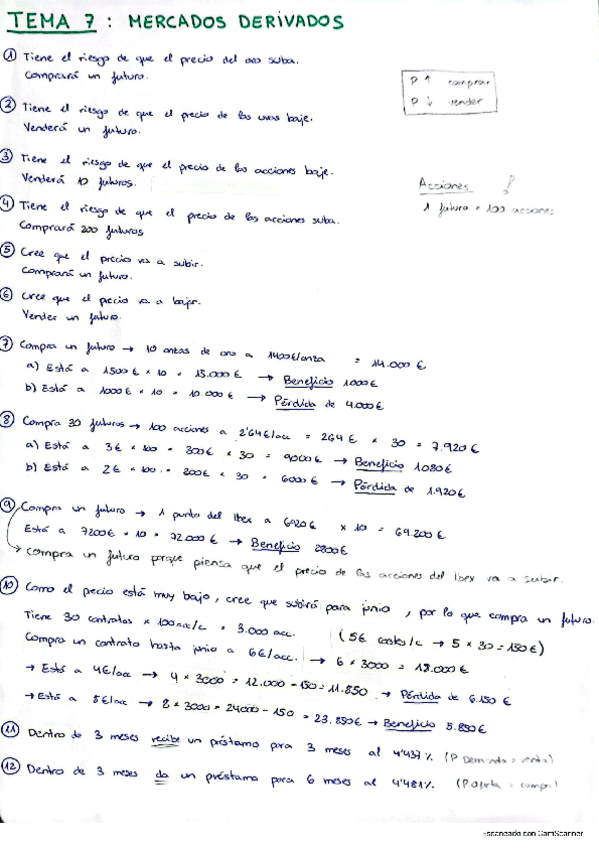 TEMA 7 : MERCADOS DERIVADOS
① Tiene el riesgo de que el precio del oro suba.
Comprará un futuro.
P ↑ comprar
P ↓ vender
② Tiene el riesgo de que el precio de las uvas baje.
Venderá un futuro.
③ Tiene el riesgo de que el precio de las acciones baje.
Venderá 10 futuros.
Acciones !
1 futuro = 100 acciones
④ Tiene el riesgo de que el precio de las acciones suba.
Comprará 200 futuros
⑤ Cree que el precio va a subir.
Comprará un futuro.
⑥ Cree que el precio va a bajar.
Vender un futuro.
⑦ Compra un futuro → 10 onzas de oro a 1400€/onza = 14.000 €
a) Está a 1500 € × 10 = 15.000 € → Beneficio 1000 €
b) Está a 1000 € × 10 = 10.000 € → Pérdida de 4.000 €
⑧ Compra 30 futuros → 100 acciones a 2'64€/acc = 264 € × 30 = 7.920 €
a) Está a 3€ × 100 = 300€ × 30 = 9000 € → Beneficio 1080 €
b) Está a 2€ × 100 = 200€ × 30 = 6000 € → Pérdida de 1.920 €
⑨ Compra un futuro → 1 punto del Ibex a 6920€ × 10 = 69.200 €
Está a 7200€ × 10 = 72.000 € → Beneficio 2800 €
→ Compra un futuro porque piensa que el precio de las acciones del Ibex va a subir.
⑩ Como el precio está muy bajo, cree que subirá para junio, por lo que compra un futuro.
Tiene 30 contratos × 100 acc/c = 3.000 acc. (5€ costes/c → 5 × 30 = 150€)
Compra un contrato hasta junio a 6€/acc. → 6 × 3000 = 18.000 €
→ Está a 4€/acc → 4 × 3000 = 12.000 - 150 = 11.850 → Pérdida de 6.150 €
→ Está a 8€/acc → 8 × 3000 = 24000 - 150 = 23.850€ → Beneficio 5.850 €
⑪ Dentro de 3 meses recibe un préstamo para 3 meses al 4'437% (P Demanda = venta)
⑫ Dentro de 3 meses da un préstamo para 6 meses al 4'481% (P oferta = compra)
Escaneado con CamScanner